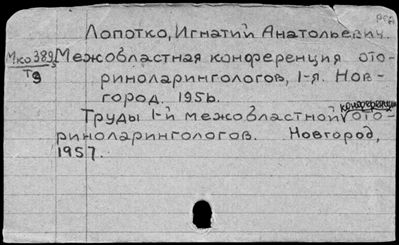 Лопотко, Игнатий Анатольевич.
рсд
Мко 389/3 Межобластная конференция ото-
Т9 риноларингологов, 1-я. Нов-
город. 1956.
конференции
Труды 1-й межобластной ото-
риноларингологов. Новгород,
1957.